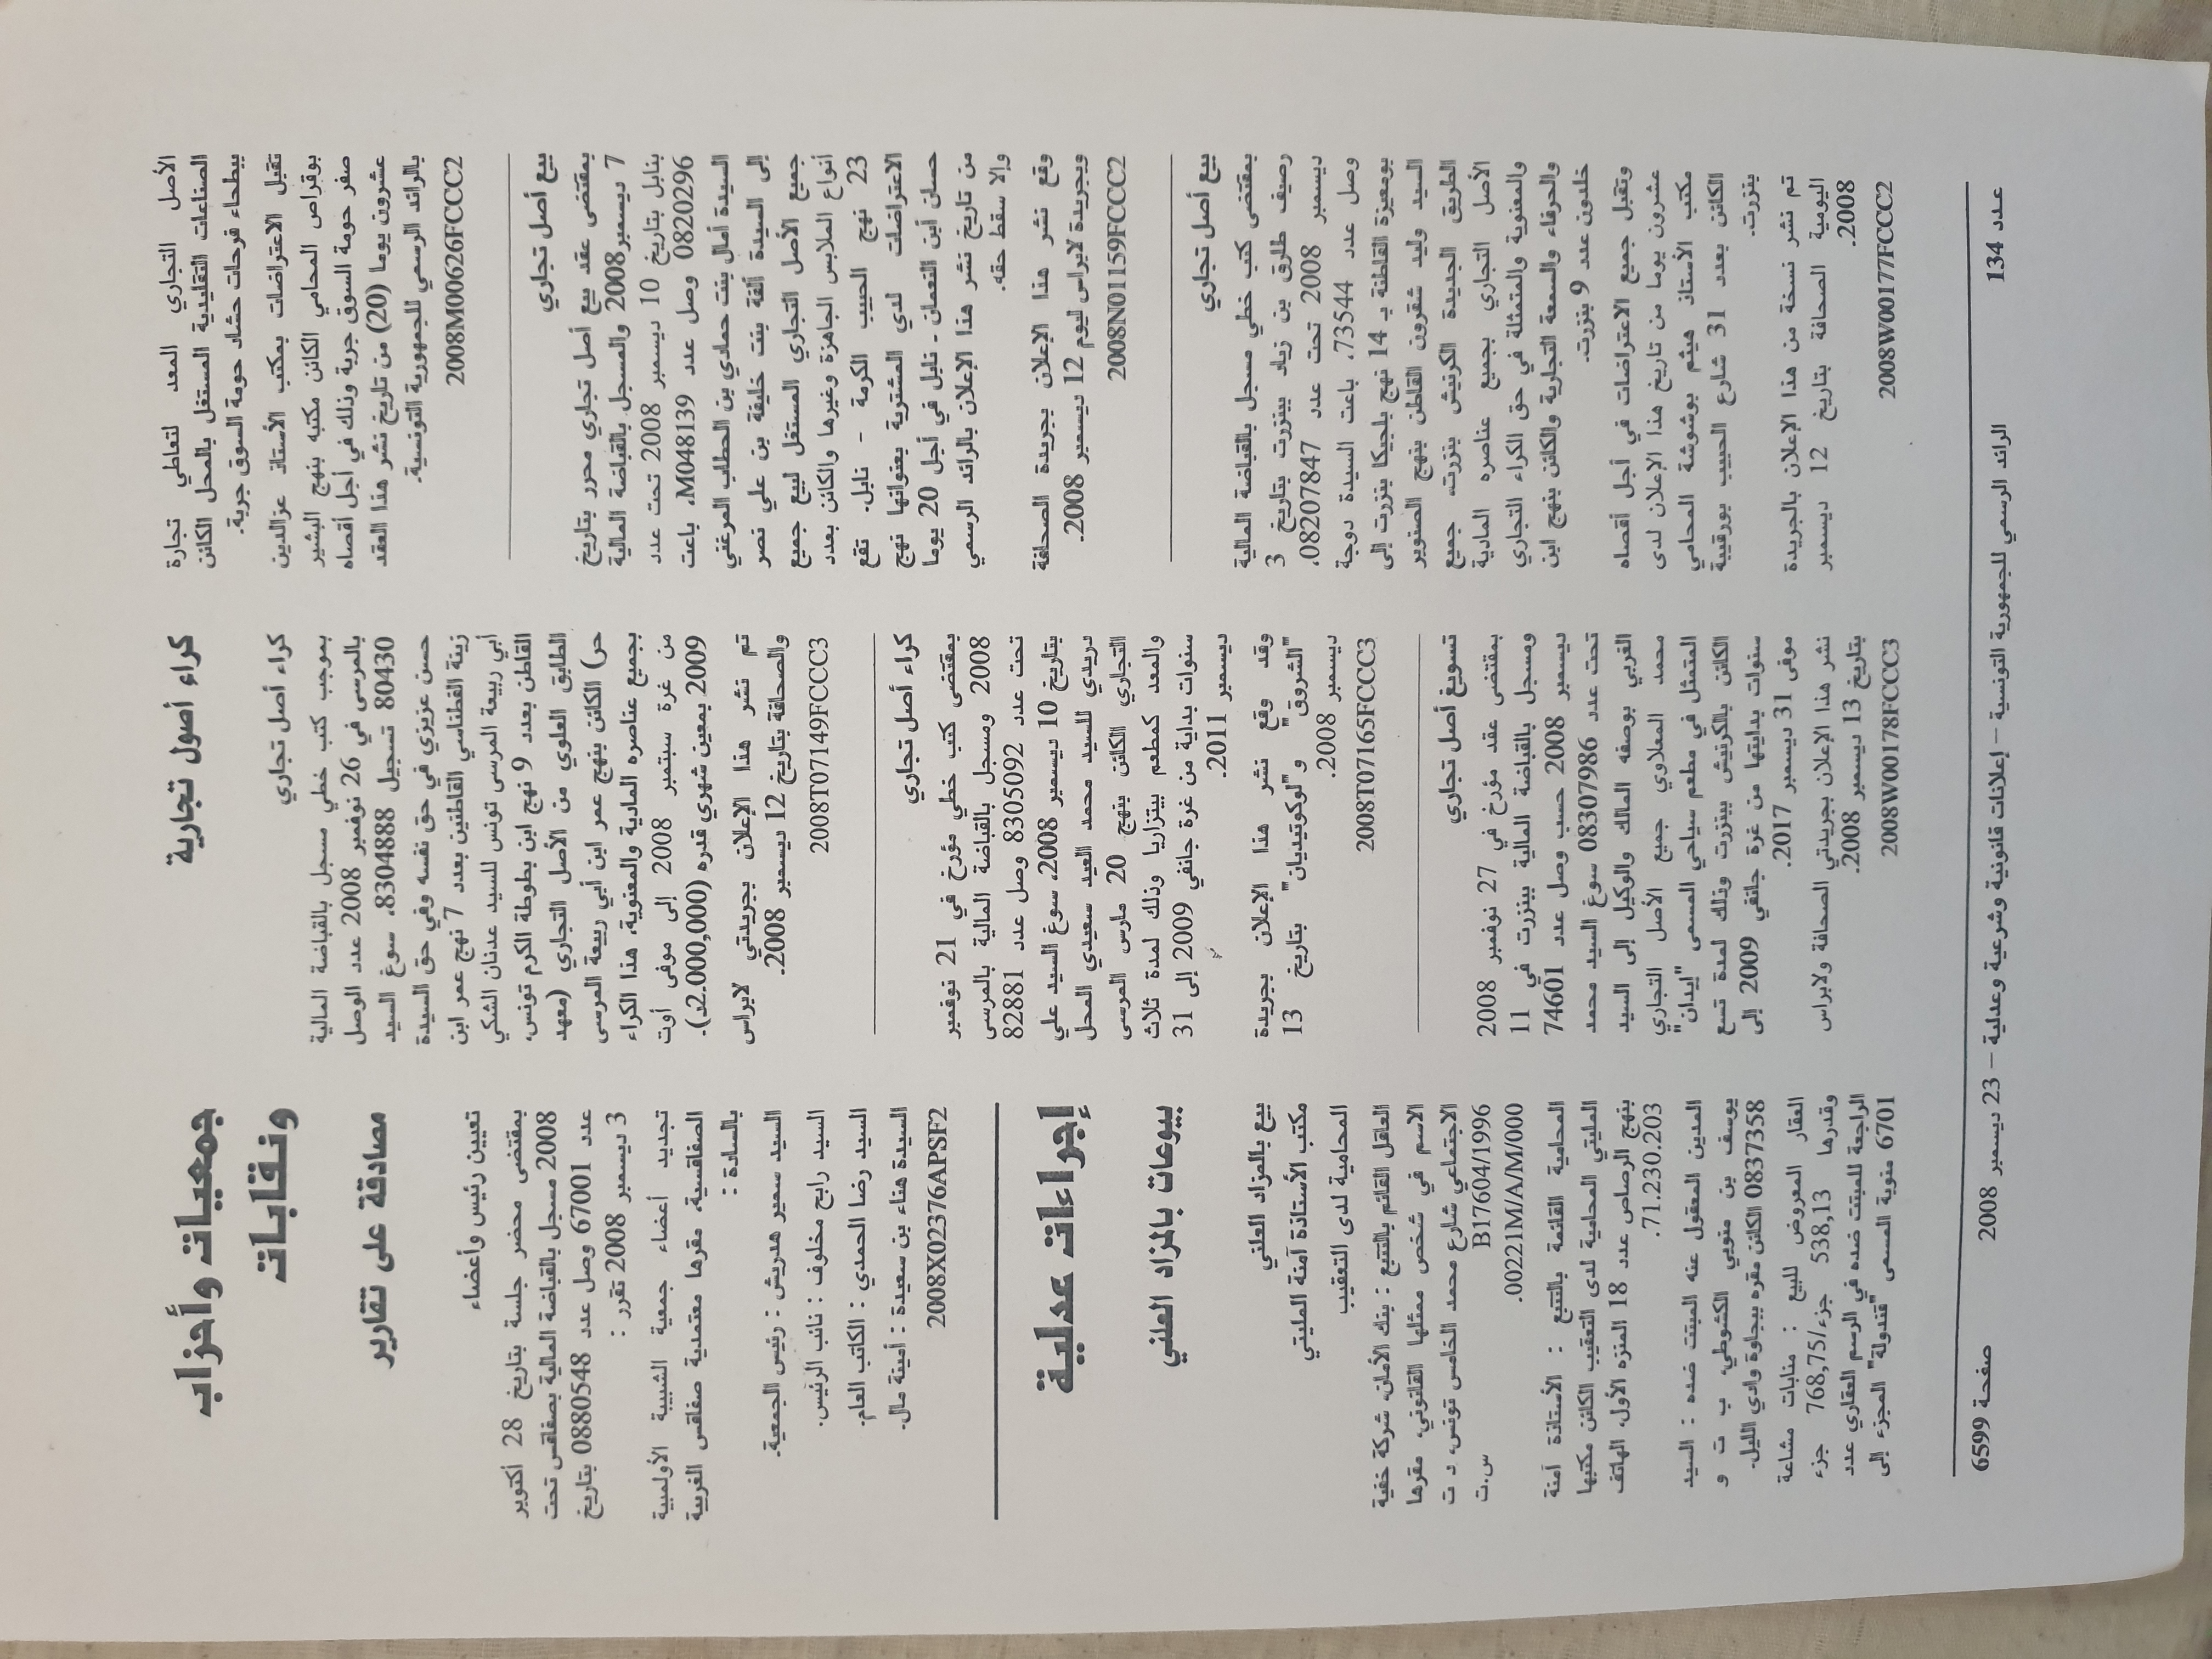 الأصل التجاري المعد لتعاطي تجارة
الصناعات التقليدية المستغل بالمحل الكائن
ببطحاء فرحات حشاد حومة السوق جربة.
تقبل الاعتراضات بمكتب الأستاذ عزالدين
بوقراص المحامي الكائن مكتبه بنهج البشير
صفر حومة السوق جربة وذلك في أجل أقصاه
عشرون يوما (20) من تاريخ نشر هذا العقد
بالرائد الرسمي للجمهورية التونسية.
2008M00626FCCC2
بيع أصل تجاري
بمقتضى عقد بيع أصل تجاري محرر بتاريخ
7 ديسمبر 2008 والمسجل بالقباضة المالية
بنابل بتاريخ 10 ديسمبر 2008 تحت عدد
0820296 وصل عدد M048139، باعت
السيدة أمال بنت حمادي بن الحطاب المرغني
إلى السيدة ألفة بنت خليفة بن علي نصر
جميع الأصل التجاري المستغل لبيع جميع
أنواع الملابس الجاهزة وغيرها والكائن بعدد
23 نهج الحبيب الكرمة - نابل. تقع
الاعتراضات لدى المشترية بعنوانها نهج
حسان أبن النعمان - نابل في أجل 20 يوما
من تاريخ نشر هذا الإعلان بالرائد الرسمي
وإلا سقط حقه.
وقع نشر هذا الإعلان بجريدة الصحافة
وبجريدة لابراس ليوم 12 ديسمبر 2008.
2008N01159FCCC2
بيع أصل تجاري
بمقتضى كتب خطي مسجل بالقباضة المالية
رصيف طارق بن زياد ببنزرت بتاريخ 3
ديسمبر 2008 تحت عدد 08207847.
وصل عدد 73544، باعت السيدة دوجة
بومعيزة القاطنة بـ 14 نهج بلجيكا بنزرت إلى
السيد وليد شقرون القاطن بنهج الصنوبر
الطريق الجديدة الكرنيش بنزرت، جميع
الأصل التجاري بجميع عناصره المادية
والمعنوية والمتمثلة في حق الكراء التجاري
والحرفاء والسمعة التجارية والكائن بنهج ابن
خلدون عدد 9 بنزرت.
وتقبل جميع الاعتراضات في أجل أقصاه
عشرون يوما من تاريخ هذا الإعلان لدى
مكتب الأستاذ هيثم بوشوشة المحامي
الكائن بعدد 31 شارع الحبيب بورقيبة
بنزرت.
تم نشر نسخة من هذا الإعلان بالجريدة
اليومية الصحافة بتاريخ 12 ديسمبر
2008.
2008W00177FCCC2
كراء أصول تجارية
كراء أصل تجاري
بموجب كتب خطي مسجل بالقباضة المالية
بالمرسى في 26 نوفمبر 2008 عدد الوصل
80430 تسجيل 8304888، سوغ السيد
حسن عزيزي في حق نفسه وفي حق السيدة
زينة الفطناسي القاطنين بعدد 7 نهج عمر ابن
أبي ربيعة المرسى تونس للسيد عدنان الشكي
القاطن بعدد 9 نهج ابن بطوطة الكرم تونس،
الطابق العلوي من الأصل التجاري (معهد
حر) الكائن بنهج عمر ابن أبي ربيعة المرسى
بجميع عناصره المادية والمعنوية، هذا الكراء
من غرة سبتمبر 2008 إلى موفى أوت
2009 بمعين شهري قدره (2.000,000د).
تم نشر هذا الإعلان بجريدتي لابراس
والصحافة بتاريخ 12 ديسمبر 2008.
2008T07149FCCC3
كراء أصل تجاري
بمقتضى كتب خطي مؤرخ في 21 نوفمبر
2008 ومسجل بالقباضة المالية بالمرسى
تحت عدد 8305092 وصل عدد 82881
بتاريخ 10 ديسمبر 2008، سوغ السيد علي
دريدي للسيد محمد العيد سعيدي المحل
التجاري الكائن بنهج 20 مارس المرسى
والمعد كمطعم بيتزاريا وذلك لمدة ثلاث
سنوات بداية من غرة جانفي 2009 إلى 31
ديسمبر 2011.
وقد وقع نشر هذا الإعلان بجريدة
"الشروق" و"لوكوتيديان" بتاريخ 13
ديسمبر 2008.
2008T07165FCCC3
تسويغ أصل تجاري
بمقتضى عقد مؤرخ في 27 نوفمبر 2008
ومسجل بالقباضة المالية ببنزرت في 11
ديسمبر 2008 حسب وصل عدد 74601
تحت عدد 08307986 سوغ السيد محمد
الغربي بوصفه المالك والوكيل إلى السيد
محمد المعلاوي جميع الأصل التجاري
المتمثل في مطعم سياحي المسمى "إيدان"
الكائن بالكرنيش ببنزرت وذلك لمدة تسع
سنوات بدايتها من غرة جانفي 2009 إلى
موفى 31 ديسمبر 2017.
نشر هذا الإعلان بجريدتي الصحافة ولابراس
بتاريخ 13 ديسمبر 2008.
2008W00178FCCC3
جمعيات وأحزاب
ونقابات
مصادقة على تقارير
تعيين رئيس وأعضاء
بمقتضى محضر جلسة بتاريخ 28 أكتوبر
2008 مسجل بالقباضة المالية بصفاقس تحت
عدد 67001 وصل عدد 0880548 بتاريخ
3 ديسمبر 2008 تقرر :
تجديد أعضاء جمعية الشبيبة الأولمبية
الصفاقسية، مقرها معتمدية صفاقس الغربية
بالسادة :
السيد سمير هدريش : رئيس الجمعية.
السيد رابح مخلوف : نائب الرئيس.
السيد رضا الحمدي : الكاتب العام.
السيدة هناء بن سعيدة : أمينة مال.
2008X02376APSF2
إجراءات عدلية
بيوعات بالمزاد العلني
بيع بالمزاد العلني
مكتب الأستاذة آمنة المليتي
المحامية لدى التعقيب
العاقل القائم بالتتبع : بنك الأمان، شركة خفية
الاسم في شخص ممثلها القانوني، مقرها
الاجتماعي شارع محمد الخامس تونس، د ت
س.ت B17604/1996
00221M/A/M/000.
المحامية القائمة بالتتبع : الأستاذة آمنة
المليتي المحامية لدى التعقيب الكائن مكتبها
بنهج الرصاص عدد 18 المنزه الأول، الهاتف
71.230.203.
المدين المعقول عنه المبتت ضده : السيد
يوسف بن منوبي الكشوطي، ب ت و
0837358 الكائن مقره ببجاوة وادي الليل.
العقار المعروض للبيع : منابات مشاعة
وقدرها 538,13 جزء/768,75 جزء
الراجعة للمبتت ضده في الرسم العقاري عدد
6701 منوبة المسمى "قندولة" المجزء إلى
عـدد 134 الرائد الرسمي للجمهورية التونسية – إعلانات قانونية وشرعية وعدلية – 23 ديسمبر 2008 صفحة 6599